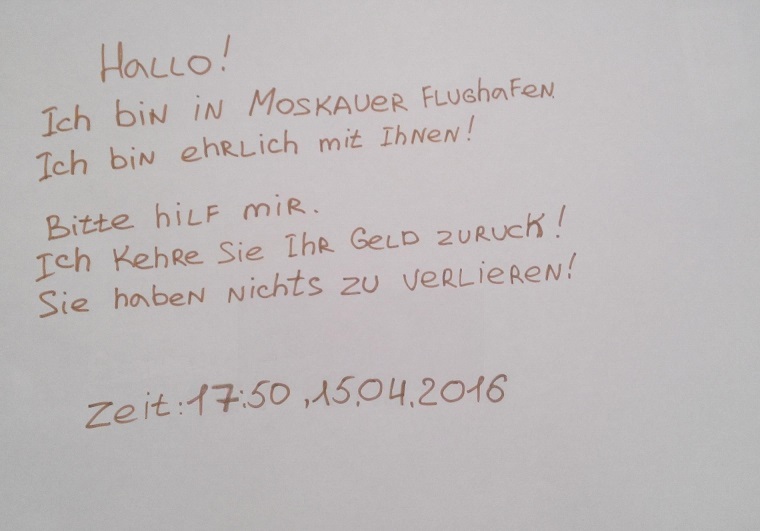 Hallo!
Ich bin in Moskauer Flughafen
Ich bin ehrlich mit Ihnen!
Bitte hilf mir.
Ich kehre Sie Ihr Geld zuruck!
Sie haben nichts zu verlieren!
Zeit: 17:50, 15.04.2016